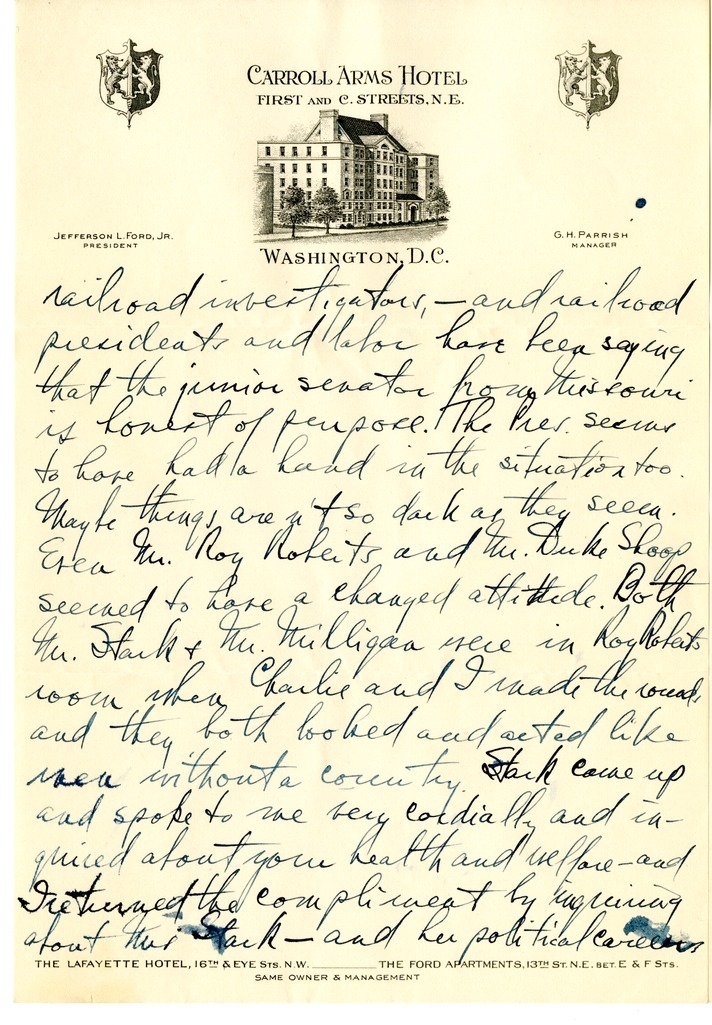 CARROLL ARMS HOTEL
FIRST AND C. STREETS, N.E.
JEFFERSON L. FORD, JR.
PRESIDENT
G. H. PARRISH
MANAGER
WASHINGTON, D.C.
railroad investigators, — and railroad
presidents and labor have been saying
that the junior senator from Missouri
is honest of purpose. The Pres. seems
to have had a hand in the situation too.
Maybe things are n't so dark as they seem.
Even Mr. Roy Roberts and Mr. Duke Shoop
seemed to have a changed attitude. Both
Mr. Stark & Mr. Milligan were in Roy Roberts
room when Charlie and I made the rounds
and they both looked and acted like
men without a country. Stark came up
and spoke to me very cordially and in-
quired about your health and welfare — and
I returned the compliment by inquiring
about Mrs Stark — and her political careers
THE LAFAYETTE HOTEL, 16TH & EYE STS. N.W. THE FORD APARTMENTS, 13TH ST. N.E. BET. E & F STS.
SAME OWNER & MANAGEMENT